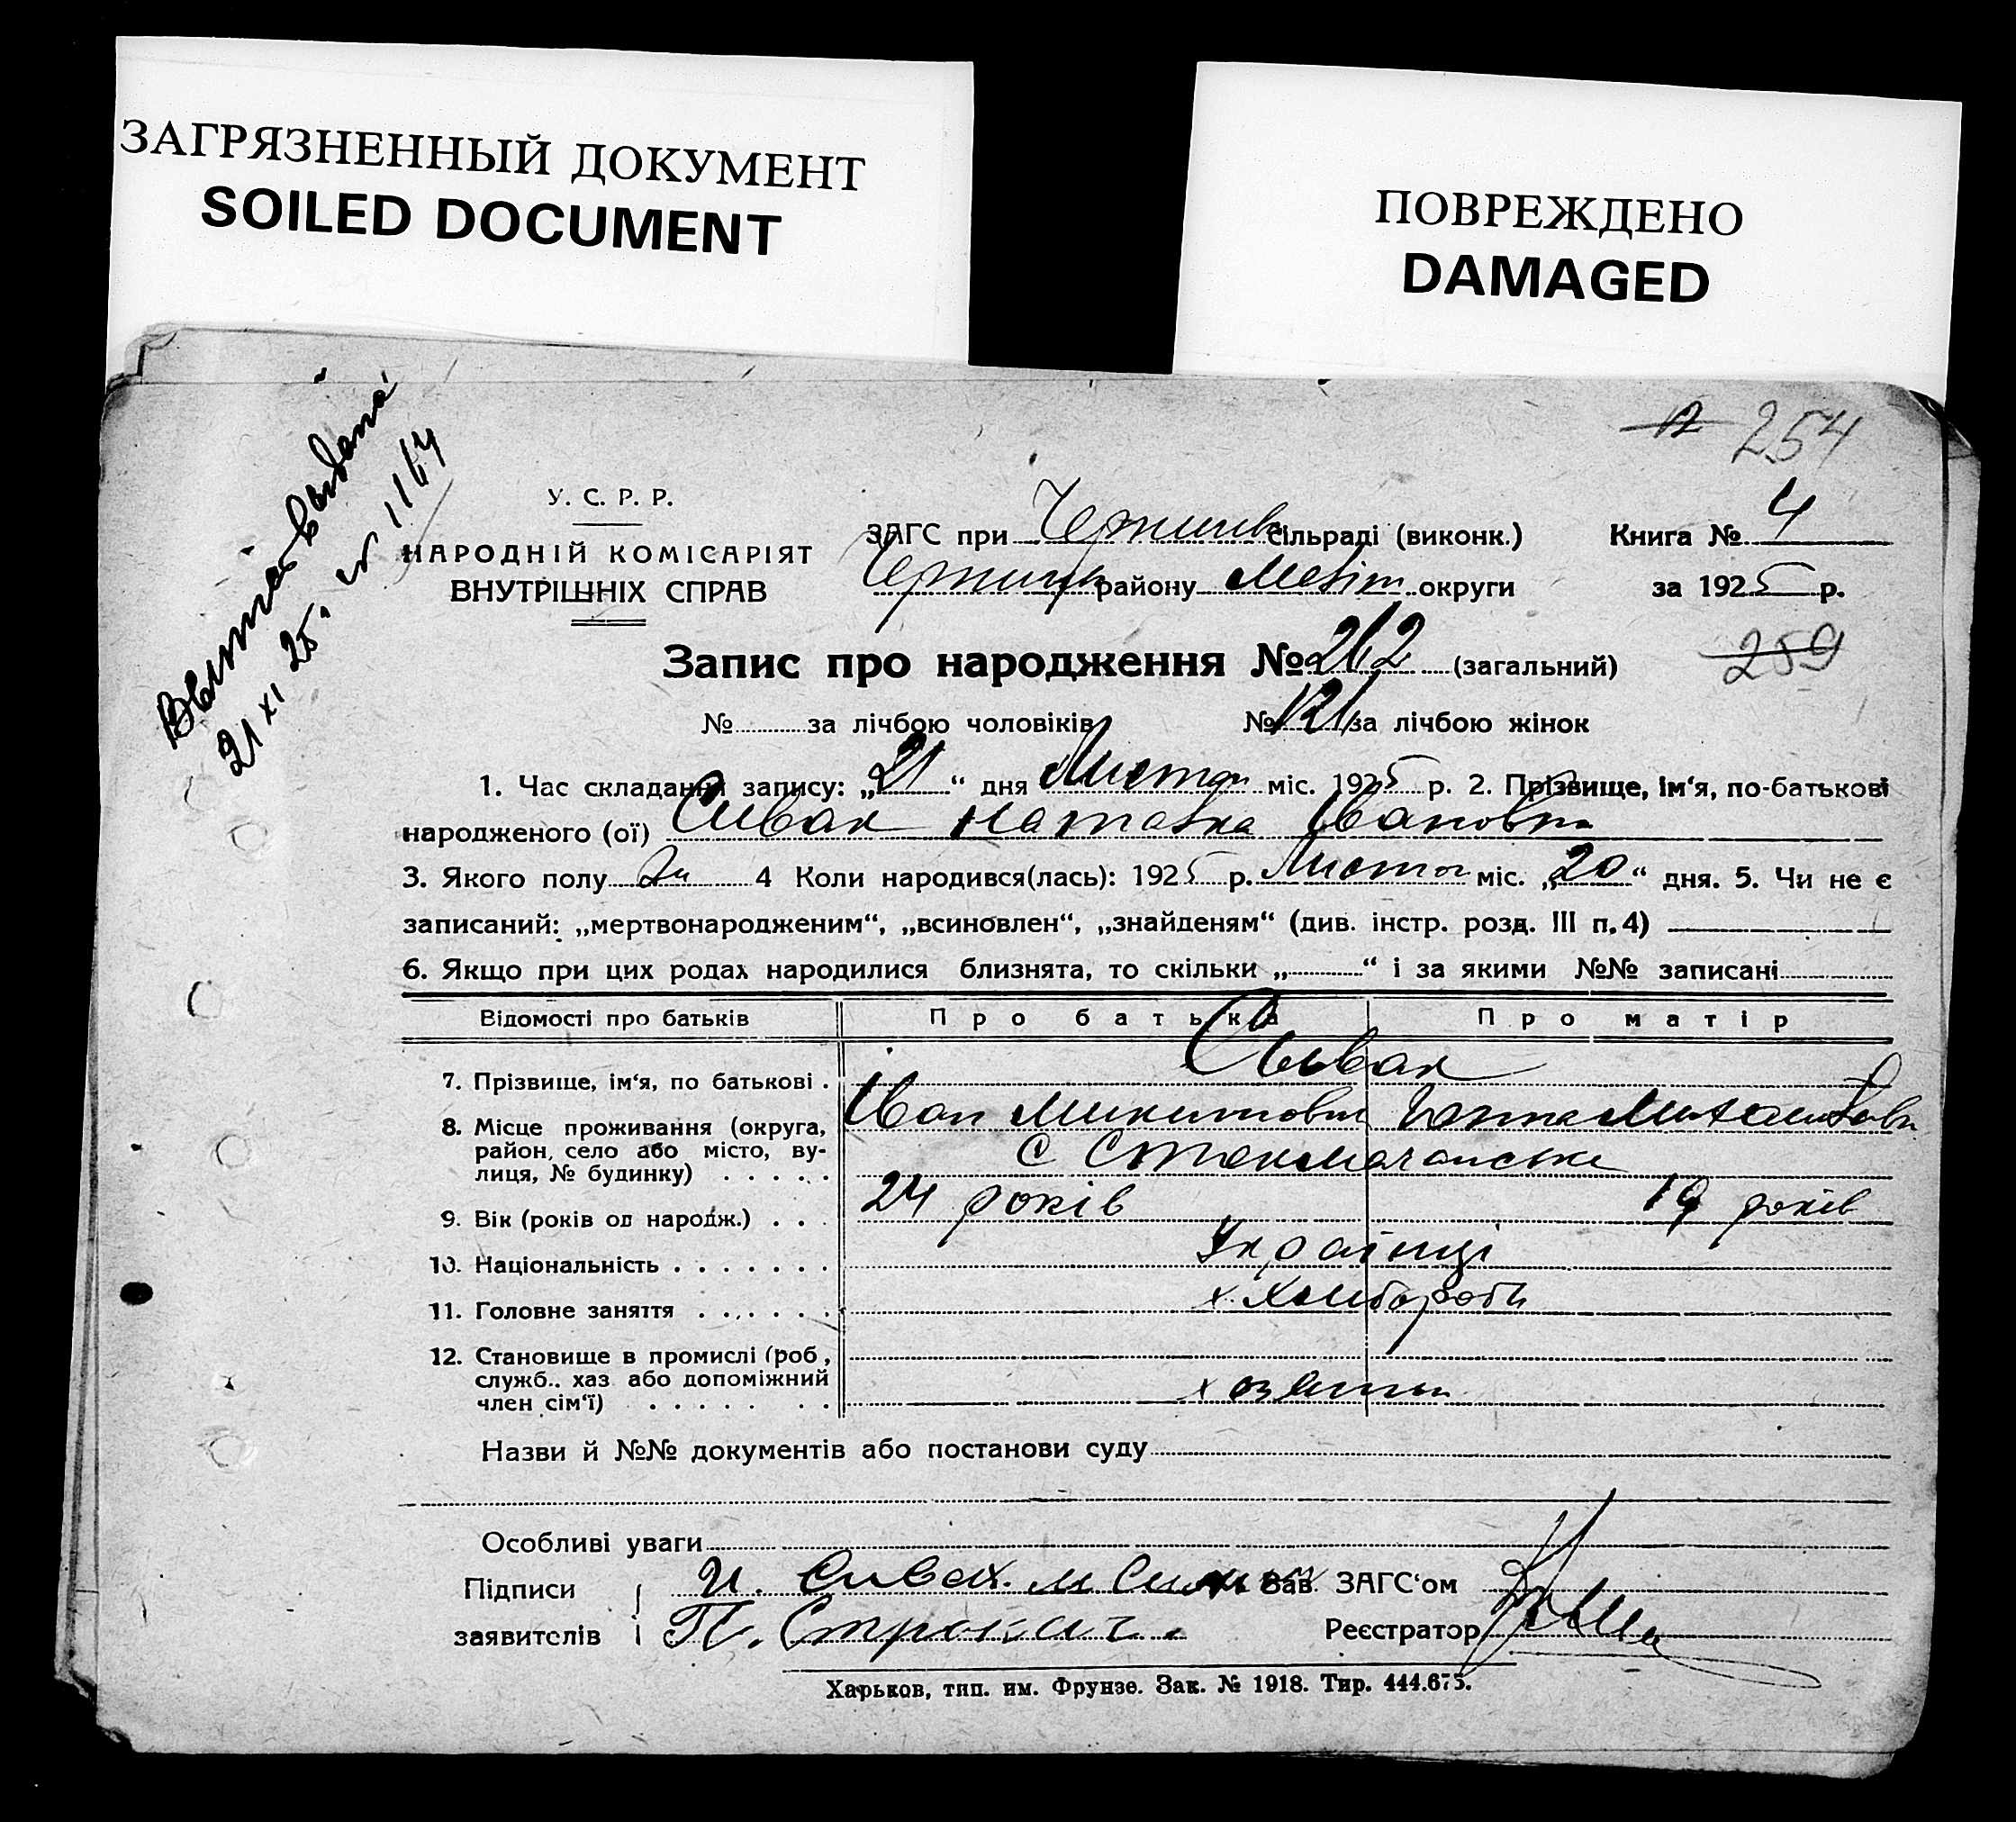 ЗАГРЯЗНЕННЫЙ ДОКУМЕНТ
SOILED DOCUMENT
ПОВРЕЖДЕНО
DAMAGED
254
У. С. Р. Р.
НАРОДНІЙ КОМІСАРІЯТ
ВНУТРІШНІХ СПРАВ
21 XI 25
ЗАГС при сільраді (виконк.)
району округи
Книга № 4
за 1925 р.
Запис про народження № 262 (загальний)
259
№ за лічбою чоловіків № 121 за лічбою жінок
1. Час складання запису: „21“ дня Листоп міс. 1925 р. 2. Прізвище, ім‘я, по-батькові
народженого (ої) Сивак Наталка Івановна
3. Якого полу Жи 4 Коли народився(лась): 1925 р. Листоп міс. „20“ дня. 5. Чи не є
записаний: „мертвонародженим“, „всиновлен“, „знайденям“ (див. інстр. розд. III п. 4)
6. Якщо при цих родах народилися близнята, то скільки „ “ і за якими №№ записані
Відомості про батьків Про батька Про матір
7. Прізвище, ім‘я, по батькові . Сывак
Іван Микитович
8. Місце проживання (округа,
район, село або місто, ву-
лиця, № будинку) . . . . .
9. Вік (років од народж.) . . . 24 років 19 років
10. Національність . . . . . . . Українці
11. Головне заняття . . . . . . х. Хлибороби
12. Становище в промислі (роб.,
служб., хаз або допоміжний
член сім‘ї) . . . . . . .
Назви й №№ документів або постанови суду
Особливі уваги
Підписи И. Сивак. Зав. ЗАГС‘ом
заявителів П. Строкач. Реєстратор
Харьков, тип. им. Фрунзе. Зак. № 1918. Тир. 444.675.